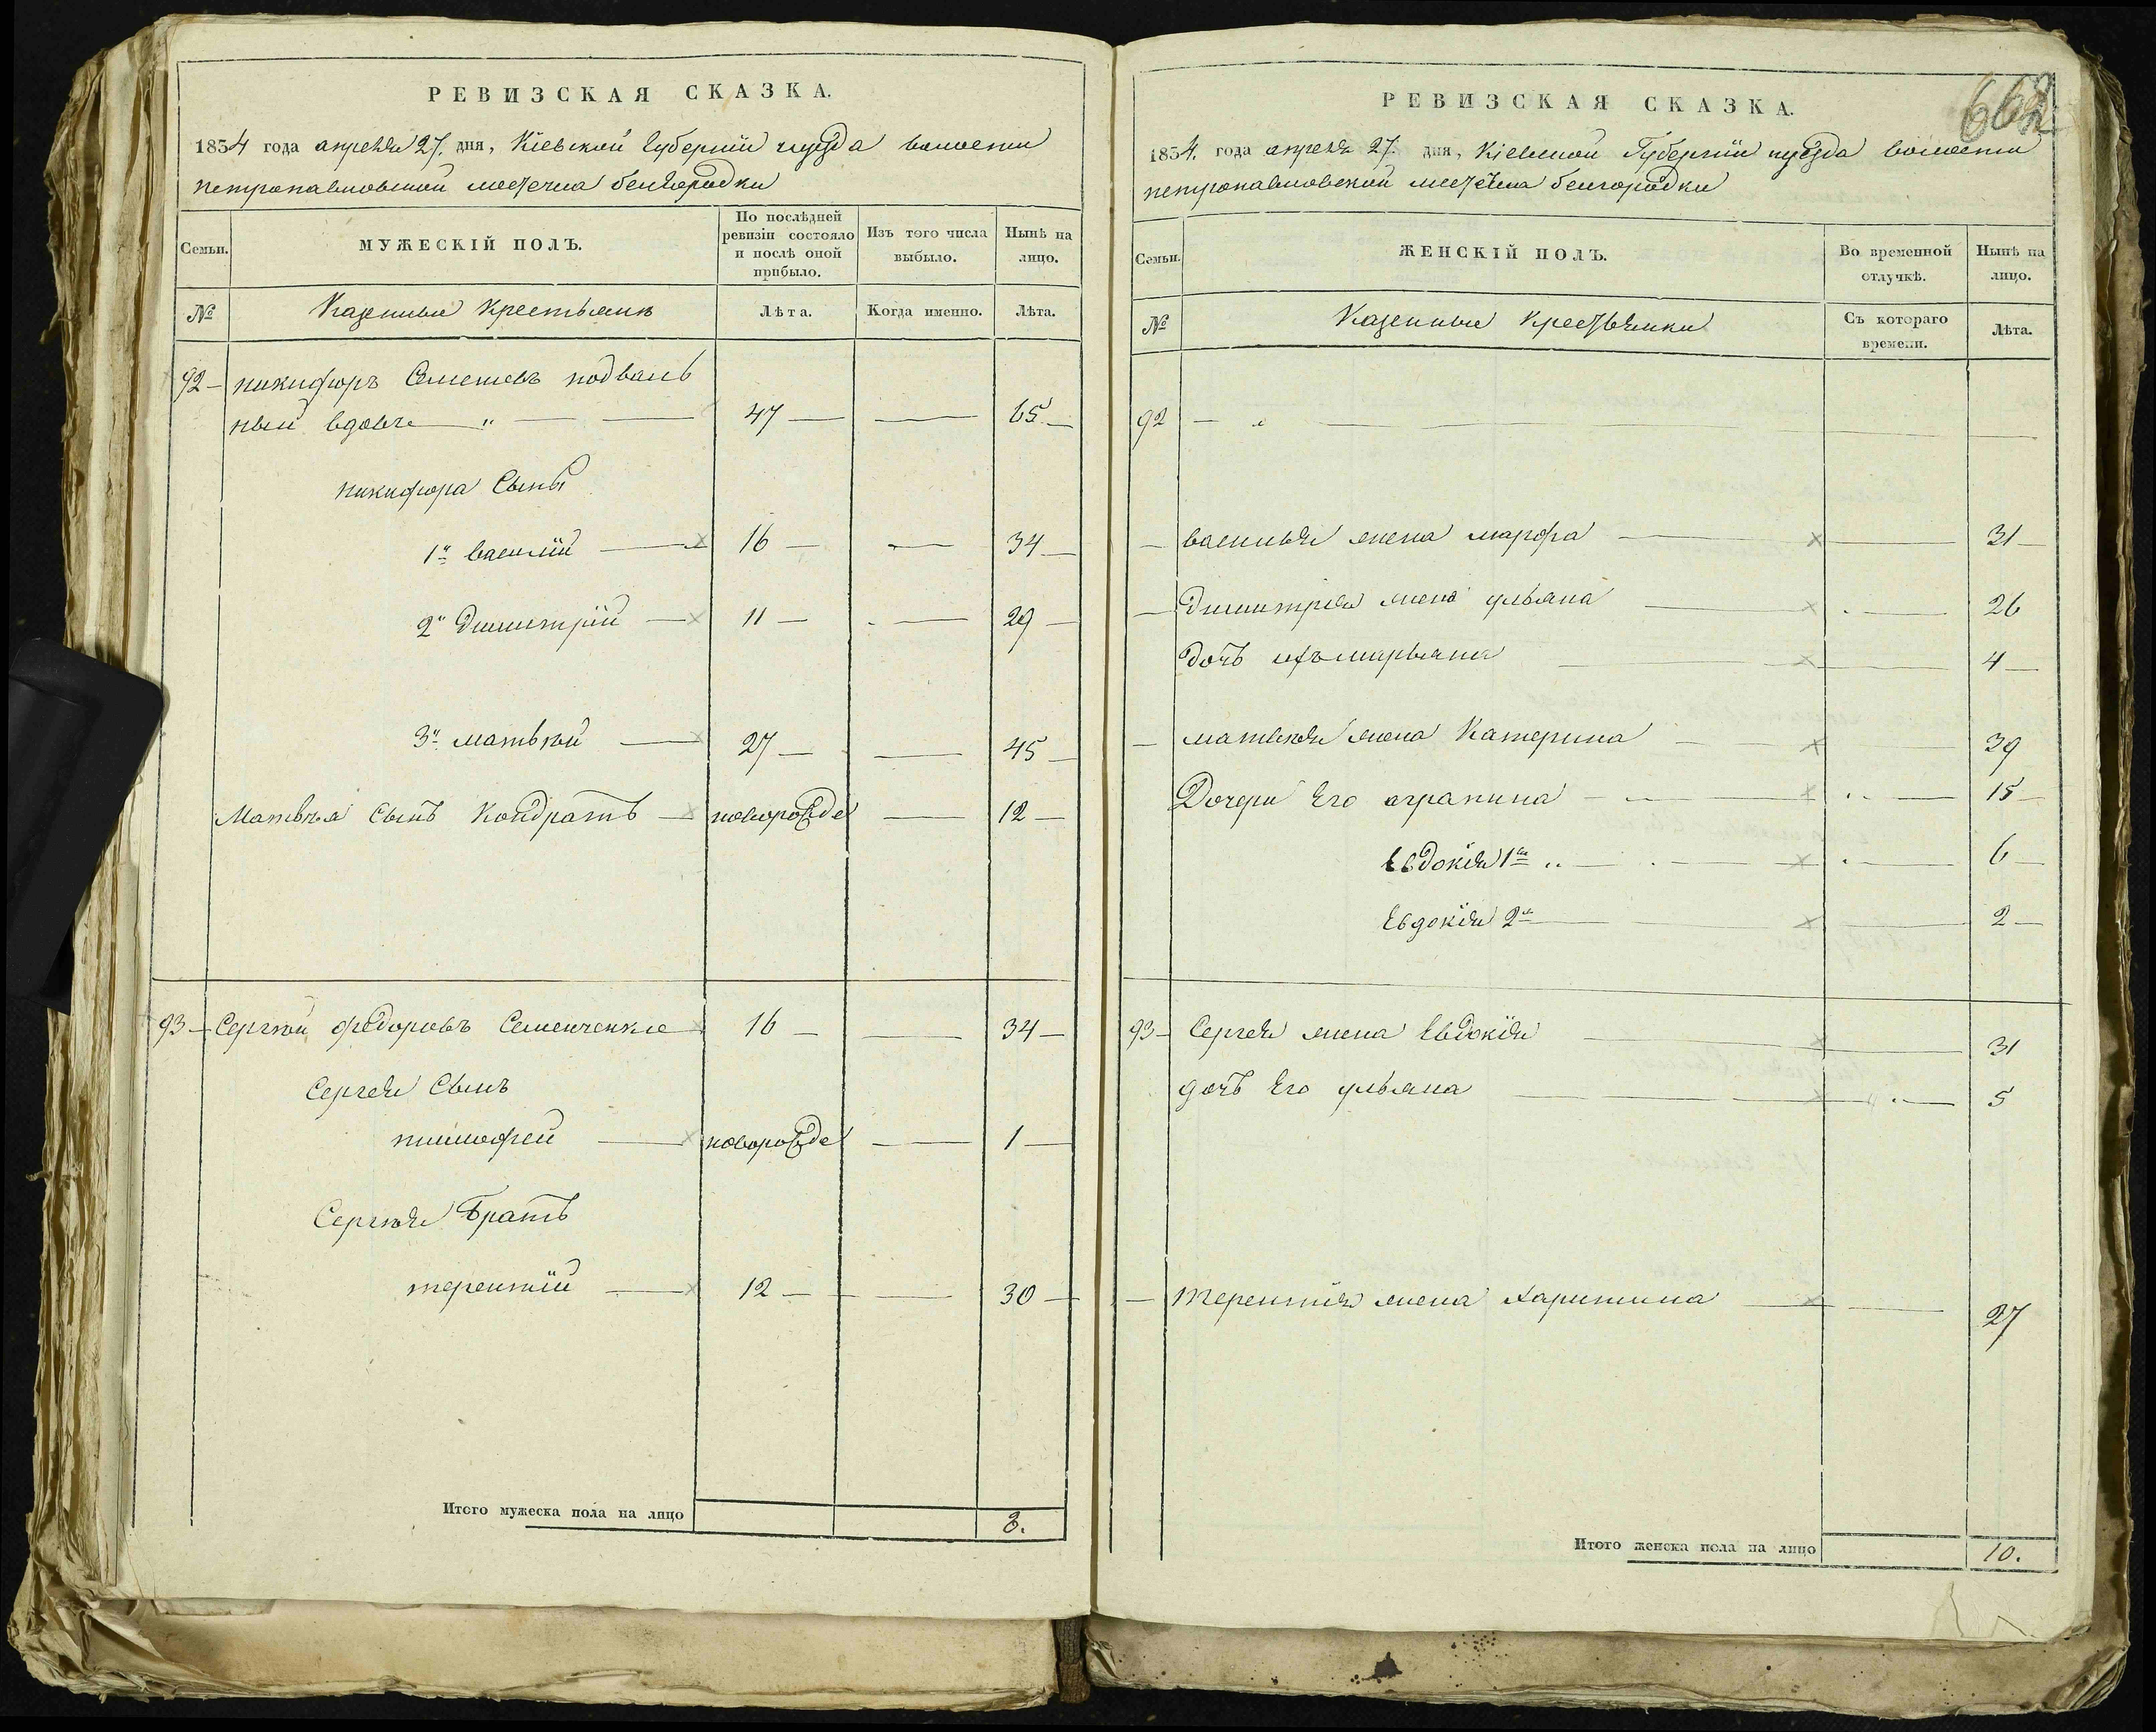 РЕВИЗСКАЯ СКАЗКА.
1834 года апреля 27. дня, Кіевской Губерніи и уезда волости
петропавловской местечка белгородки
Семьи.
МУЖЕСКІЙ ПОЛЪ.
По послѣдней ревизіи состояло и послѣ оной прибыло.
Изъ того числа выбыло.
Нынѣ на лицо.
№
Казенные Крестьяне
Лѣта.
Когда именно.
Лѣта.
92 – никифоръ Семеновъ подваль
ный вдовъ — " — — 47 — — 65 —
никифора Сыны
1й василій — 16 — — 34 —
2й Димитрій — 11 — — 29 —
3й матвѣй — 27 — — 45 —
Матвѣя Сынъ Кондратъ — новорожде — 12 —
93 – Сергѣй федоровъ Семенченко 16 — — 34 —
Сергея Сынъ
тимофей — новорожде — 1 —
Сергѣя Братъ
терентій — 12 — — 30 —
Итого мужеска пола на лицо 8.
662
РЕВИЗСКАЯ СКАЗКА.
1834. года апреля 27. дня, Кіевской Губерніи и уезда волости
петропавловской местечка белгородки
Семьи.
ЖЕНСКІЙ ПОЛЪ.
Во временной отлучкѣ.
Нынѣ на лицо.
№
Казенные Крестьянки
Съ котораго времени.
Лѣта.
92 — " — —
— василья жена марфа — — 31 —
— Димитрія жена ульяна — — 26
дочь ихъ марьяна — — 4 —
— матвѣя жена Катерина — — 39
Дочери Его аграпина — — 15 —
Евдокія 1я — — 6 —
Евдокія 2я — — 2 —
93 – Сергея жена Евдокія — — 31
дочь Его ульяна — — 5
— терентія жена харитина — — 27
Итого женска пола на лицо 10.